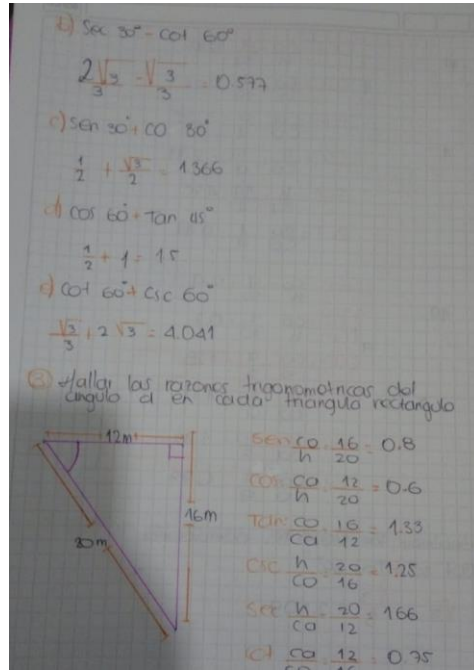 b) Sec 30° - cot 60°
2√3/3 - √3/3 = 0.577
c) Sen 30° + CO 30°
1/2 + √3/2 = 1366
d) cos 60° + Tan 45°
1/2 + 1 = 1.5
e) cot 60° + csc 60°
√3/3 + 2√3 = 4.041
③ Hallar las razones trigonometricas del
angulo d en cada triangulo rectangulo
12m
16m
20m
Sen co/h 16/20 = 0.8
cos ca/h 12/20 = 0.6
Tan co/ca 16/12 = 1.33
csc h/co 20/16 = 1.25
sec h/ca 20/12 = 166
ca 12 = 0.75